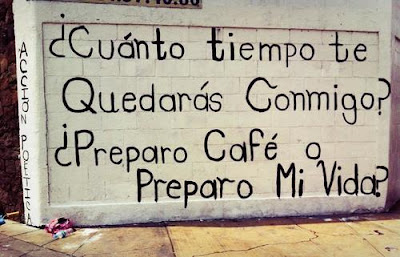 ¿Cuánto tiempo te
Quedarás Conmigo?
¿Preparo Café o
Preparo Mi Vida?
ACCIÓN POETICA